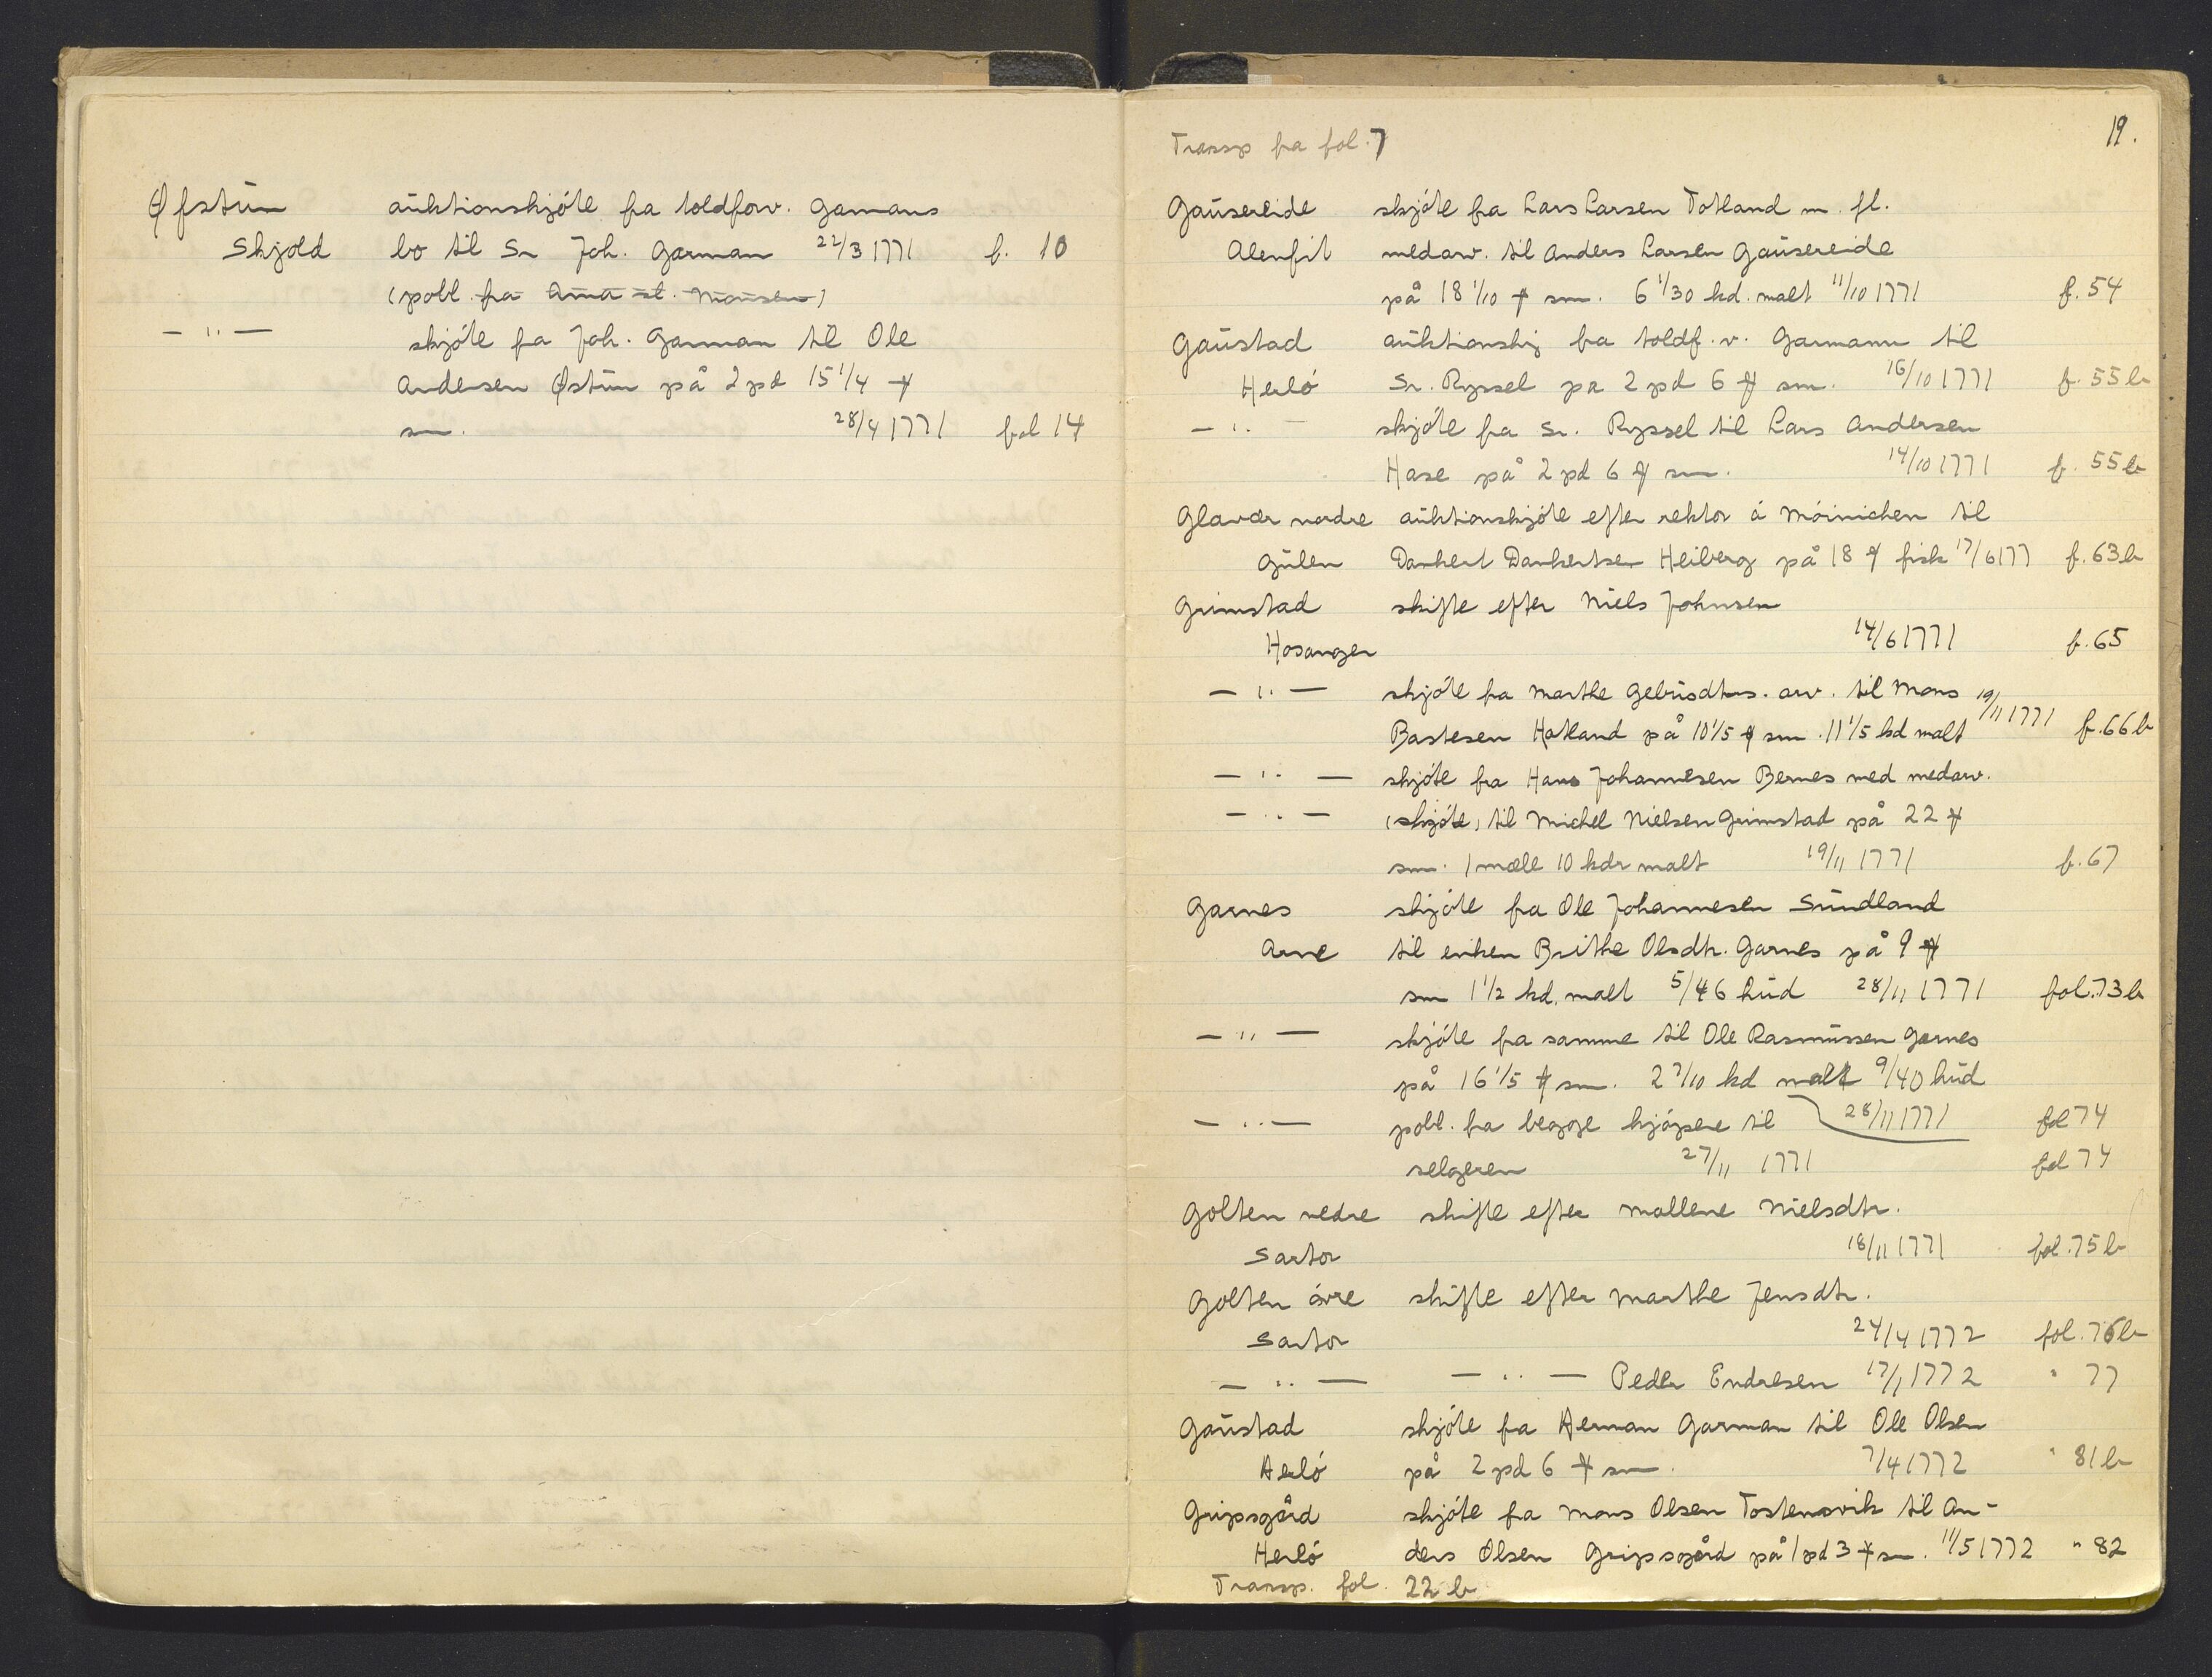 Øfstun auktionskjöte fra toldforv. Gamans
Skjold bo til Sr Joh. Garman 22/3 1771 f. 10
(pobl. fra Ama st. Monsen)
— " — skjöte fra Joh. Garman til Ole
Andersen Østun på 2 pd 15 1/4 #
sm. 28/4 1771 fol 14
Transp fra fol. 7
19.
Gausereide skjöte fra Lars Larsen Totland m. fl.
Alenfit medarv. til Anders Larsen Gausereide
på 18 1/10 # sm. 6 1/30 kd. malt 11/10 1771 f. 54
Gaustad auktionskj fra toldf.v. Garmann til
Herlö Sr. Ryssel pa 2 pd 6 # sm. 16/10 1771 f. 55 b
— " — skjöte fra Sr. Ryssel til Lars Andersen
Hase på 2 pd 6 # sm. 14/10 1771 f. 55 b
Glavær nordre auktionskjöte efter rektor á Möinichen til
Gulen Dankert Dankertsen Heiberg på 18 # fisk 17/6 177 f. 63 b
Grimstad skifte efter Niels Johnsen
Hosanger 14/6 1771 f. 65
— " — skjöte fra Marthe Gebrisdtrs. arv. til Mons
Bastesen Hatland på 10 1/5 # sm. 11 1/5 kd malt 19/11 1771 f. 66 b
— " — skjöte fra Hans Johannesen Bernes med medarv.
— " — (skjöte) til Michel Nielsen Grimstad på 22 #
sm. 1 mæle 10 kdr malt 19/11 1771 f. 67
Garnes skjöte fra Ole Johannesen Sundland
Arne til enken Brithe Olsdtr. Garnes på 9 #
sm 1 1/2 kd. malt 5/46 hud 28/11 1771 fol. 73 b
— " — skjöte fra samme til Ole Rasmussen Garnes
på 16 1/5 # sm. 2 7/10 kd malt 9/40 hud
— " — pobl. fra begge kjöpere til 28/11 1771 fol 74
selgeren 27/11 1771 fol 74
Golten nedre skifte efter Mallene Nielsdtr.
Sartor 18/11 1771 fol. 75 b
Golten övre skifte efter Marthe Jensdtr.
Sartor 24/4 1772 fol. 76 b
— " — — " — Peder Endresen 17/1 1772 " 77
Gaustad skjöte fra Herman Garman til Ole Olsen
Herlö på 2 pd 6 # sm. 7/4 1772 " 81 b
Gripsgård skjöte fra Mons Olsen Tostensvik til An-
Herlö ders Olsen Gripsgård på 1 pd 3 # sm. 11/5 1772 " 82
Transp. fol. 22 b